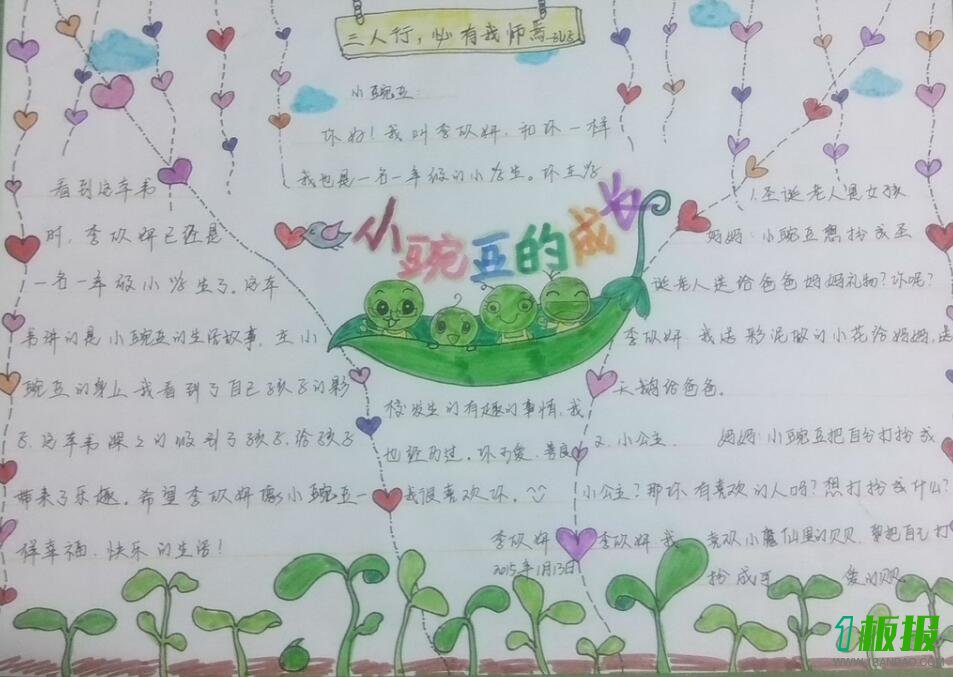 三人行，必有我师焉
小豌豆：
你好！我叫李欣妍，和你一样
我也是一名一年级的小学生。你在学
校发生的有趣的事情，我
也经历过。你可爱、善良，
我很喜欢你。
李欣妍
2015年1月13日
小豌豆的成长
看到这本书
时，李欣妍已经是
一名一年级小学生了。这本
书讲的是小豌豆的生活故事，在小
豌豆的身上我看到了自己孩子的影
子。这本书深深的吸引了孩子，给孩子
带来了乐趣。希望李欣妍像小豌豆一
样幸福、快乐的生活！
1.圣诞老人是女孩
妈妈：小豌豆想扮成圣
诞老人送给爸爸妈妈礼物？你呢？
李欣妍：我送彩泥做的小花给妈妈，送
天鹅给爸爸。
2.小公主
妈妈：小豌豆把自己打扮成
小公主？那你有喜欢的人吗？想打扮成什么？
李欣妍：我喜欢小魔仙里的贝贝，要把自己打
扮成可爱的贝贝
1板报
WWW.1BANBAO.COM